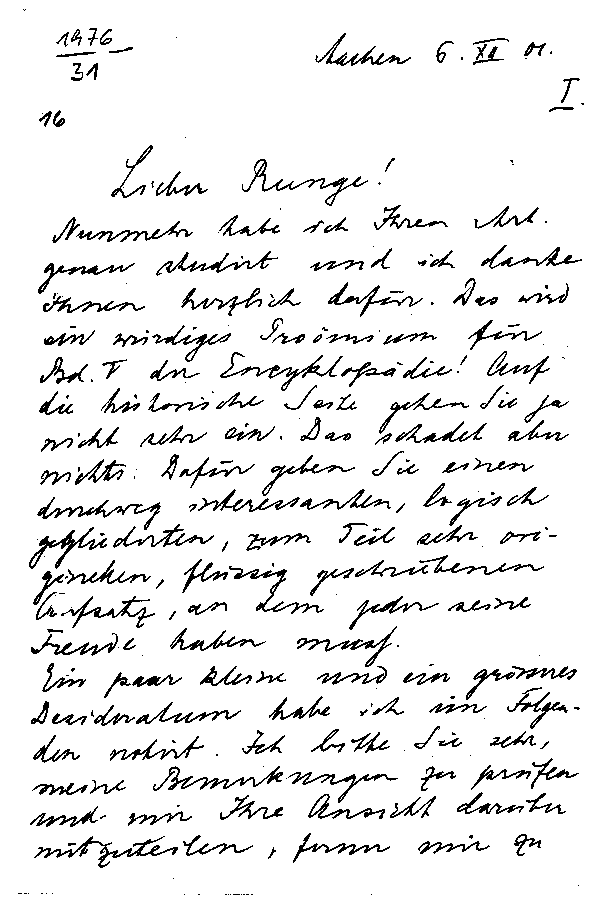 1976
31
Aachen 6. XII 01.
I.
16
Lieber Runge!
Nunmehr habe ich Ihren Art.
genau studirt und ich danke
Ihnen herzlich dafür. Das wird
ein würdiges Proömium für
Bd. V der Encyklopädie! Auf
die historische Seite gehen Sie ja
nicht sehr ein. Das schadet aber
nichts. Dafür geben Sie einen
durchweg interessanten, logisch
gegliederten, zum Teil sehr ori-
ginellen, flüssig geschriebenen
Aufsatz, an dem jeder seine
Freude haben muss.
Ein paar kleine und ein grösseres
Desideratum habe ich im Folgen-
den notirt. Ich bitte Sie sehr,
meine Bemerkungen zu prüfen
und mir Ihre Ansicht darüber
mitzuteilen, ferner mir zu